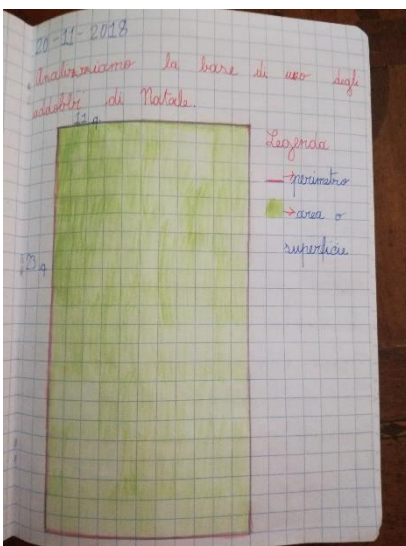 20-11-2018
Analizziamo la base di uno degli
addobbi di Natale.
12 q
Legenda
→perimetro
23 q
→area o
superficie